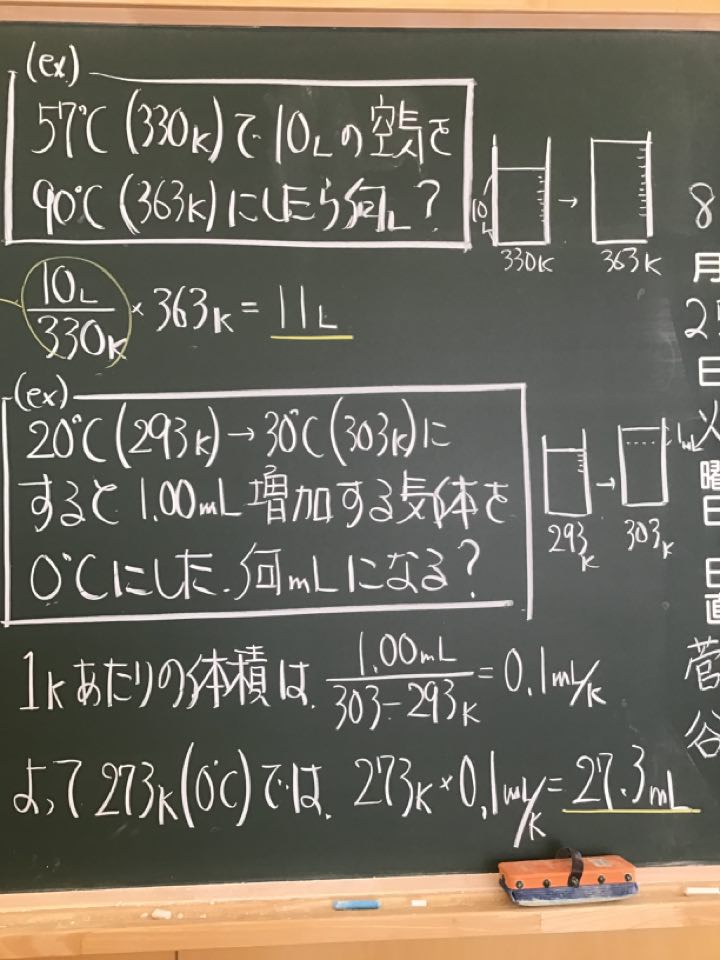 (ex)
57℃(330K)で10Lの空気を
90℃(363K)にしたら何L?
10L
330K → 363K
10L/330K × 363K = 11L
(ex)
20℃(293K)→30℃(303K)に
すると1.00mL増加する気体を
0℃にした.何mLになる?
293K → 303K
1mL
1Kあたりの体積は. 1.00mL/303-293K = 0.1mL/K
よって273K(0℃)では. 273K × 0.1mL/K = 27.3mL
8
月
日
火
曜
日
日
直
菅
谷